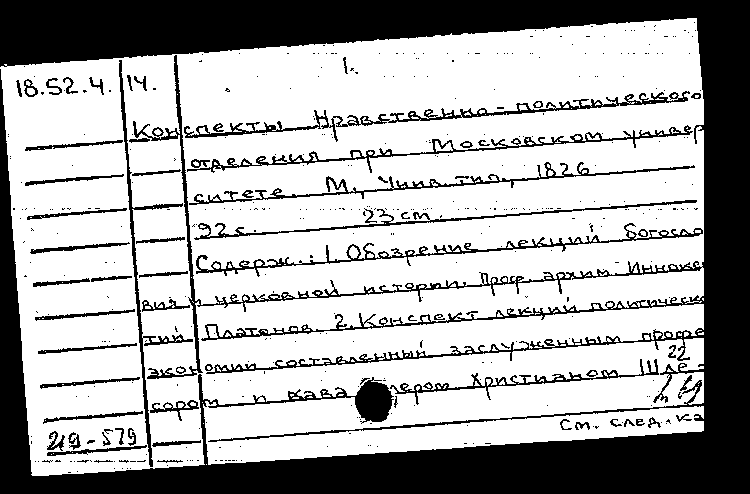 1.
18.52.4. 14.
Конспекты Нравственно-политического
отделения при Московском универ
ситете. М., Унив. тип., 1826
92 с. 23 см.
Содерж.: 1. Обозрение лекций богосло
вия и церковной истории. Проф. архим. Иннокен
тий Платонов. 2. Конспект лекций политическо
экономии составленный заслуженным профе
сором и кава лером Христианом Шле-
22
219-579
См. след. ка